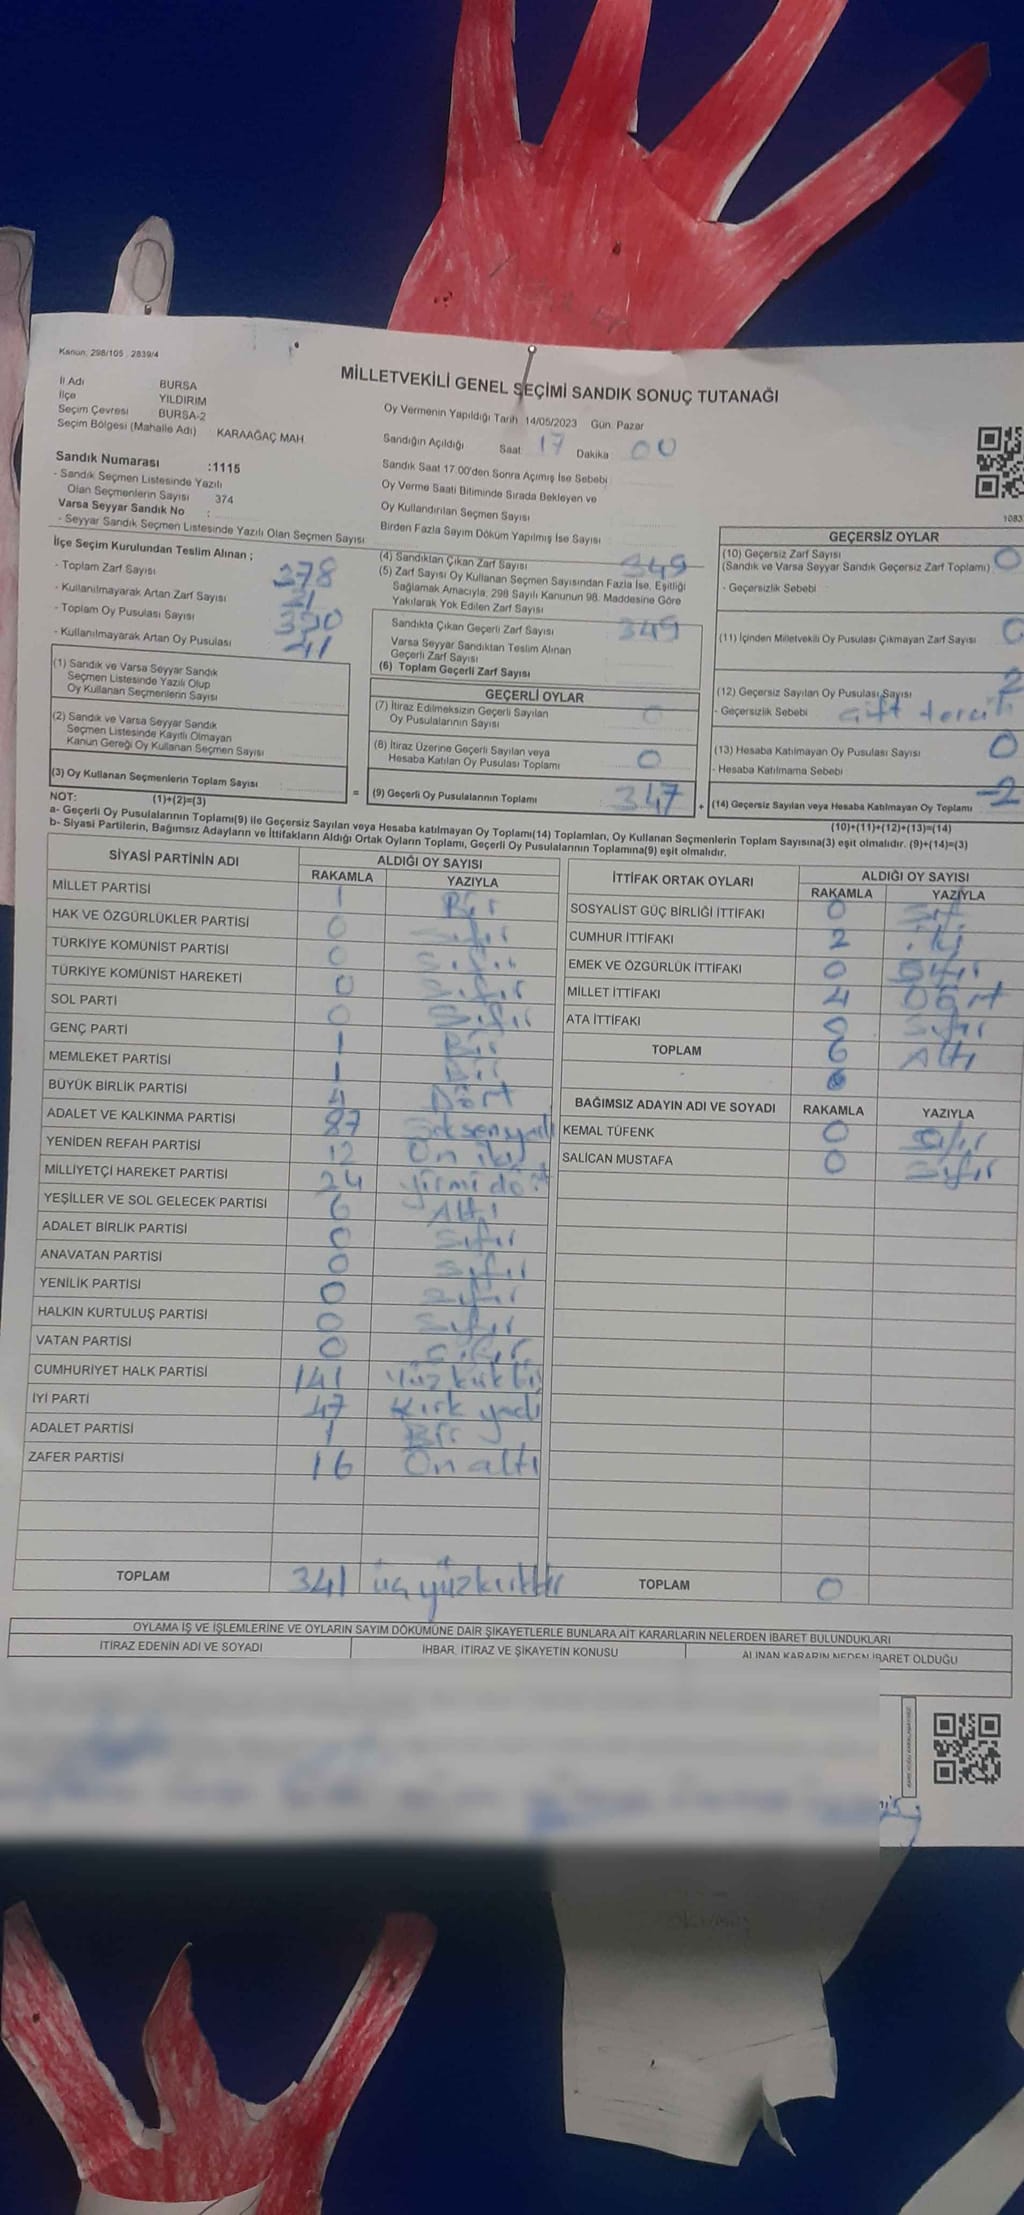 Kanun, 298/105 , 2839/4
MİLLETVEKİLİ GENEL SEÇİMİ SANDIK SONUÇ TUTANAĞI
İl Adı BURSA
İlçe YILDIRIM
Seçim Çevresi BURSA-2
Seçim Bölgesi (Mahalle Adı) KARAAĞAÇ MAH.
Oy Vermenin Yapıldığı Tarih 14/05/2023 Gün: Pazar
Sandığın Açıldığı Saat 17 Dakika 00
Sandık Numarası :1115
- Sandık Seçmen Listesinde Yazılı
Olan Seçmenlerin Sayısı 374
Varsa Seyyar Sandık No :
- Seyyar Sandık Seçmen Listesinde Yazılı Olan Seçmen Sayısı
Sandık Saat 17.00'den Sonra Açımış İse Sebebi
Oy Verme Saati Bitiminde Sırada Bekleyen ve
Oy Kullandırılan Seçmen Sayısı
Birden Fazla Sayım Döküm Yapılmış İse Sayısı
İlçe Seçim Kurulundan Teslim Alınan ;
- Toplam Zarf Sayısı 378
- Kullanılmayarak Artan Zarf Sayısı
- Toplam Oy Pusulası Sayısı
- Kullanılmayarak Artan Oy Pusulası 41
(1) Sandık ve Varsa Seyyar Sandık
Seçmen Listesinde Yazılı Olup
Oy Kullanan Seçmenlerin Sayısı
(2) Sandık ve Varsa Seyyar Sandık
Seçmen Listesinde Kayıtlı Olmayan
Kanun Gereği Oy Kullanan Seçmen Sayısı
(3) Oy Kullanan Seçmenlerin Toplam Sayısı
(4) Sandıktan Çıkan Zarf Sayısı 349
(5) Zarf Sayısı Oy Kullanan Seçmen Sayısından Fazla İse, Eşitliği
Sağlamak Amacıyla, 298 Sayılı Kanunun 98. Maddesine Göre
Yakılarak Yok Edilen Zarf Sayısı
Sandıkta Çıkan Geçerli Zarf Sayısı 349
Varsa Seyyar Sandıktan Teslim Alınan
Geçerli Zarf Sayısı
(6) Toplam Geçerli Zarf Sayısı
GEÇERLİ OYLAR
(7) İtiraz Edilmeksizin Geçerli Sayılan
Oy Pusulalarının Sayısı 0
(8) İtiraz Üzerine Geçerli Sayılan veya
Hesaba Katılan Oy Pusulası Toplamı 0
= (9) Geçerli Oy Pusulalarının Toplamı 347 +
GEÇERSİZ OYLAR
(10) Geçersiz Zarf Sayısı 0
(Sandık ve Varsa Seyyar Sandık Geçersiz Zarf Toplamı)
- Geçersizlik Sebebi
(11) İçinden Milletvekili Oy Pusulası Çıkmayan Zarf Sayısı 0
(12) Geçersiz Sayılan Oy Pusulası Sayısı 2
- Geçersizlik Sebebi Çift tercih
(13) Hesaba Katılmayan Oy Pusulası Sayısı 0
- Hesaba Katılmama Sebebi
(14) Geçersiz Sayılan veya Hesaba Katılmayan Oy Toplamı 2
NOT: (1)+(2)=(3)
(10)+(11)+(12)+(13)=(14)
a- Geçerli Oy Pusulalarının Toplamı(9) ile Geçersiz Sayılan veya Hesaba katılmayan Oy Toplamı(14) Toplamları, Oy Kullanan Seçmenlerin Toplam Sayısına(3) eşit olmalıdır. (9)+(14)=(3)
b- Siyasi Partilerin, Bağımsız Adayların ve İttifakların Aldığı Ortak Oyların Toplamı, Geçerli Oy Pusulalarının Toplamına(9) eşit olmalıdır.
SİYASİ PARTİNİN ADI ALDIĞI OY SAYISI
RAKAMLA YAZIYLA
MİLLET PARTİSİ 1 Bir
HAK VE ÖZGÜRLÜKLER PARTİSİ 0 Sıfır
TÜRKİYE KOMÜNİST PARTİSİ 0 Sıfır
TÜRKİYE KOMÜNİST HAREKETİ 0 Sıfır
SOL PARTİ 0 Sıfır
GENÇ PARTİ 1 Bir
MEMLEKET PARTİSİ 1 Bir
BÜYÜK BİRLİK PARTİSİ 4 Dört
ADALET VE KALKINMA PARTİSİ 87 Seksenyedi
YENİDEN REFAH PARTİSİ 12 On iki
MİLLİYETÇİ HAREKET PARTİSİ 24 Yirmi dört
YEŞİLLER VE SOL GELECEK PARTİSİ 6 Altı
ADALET BİRLİK PARTİSİ 0 Sıfır
ANAVATAN PARTİSİ 0 Sıfır
YENİLİK PARTİSİ 0 Sıfır
HALKIN KURTULUŞ PARTİSİ 0 Sıfır
VATAN PARTİSİ 0 Sıfır
CUMHURİYET HALK PARTİSİ 141 Yüz kırk bir
İYİ PARTİ 47 Kırk yedi
ADALET PARTİSİ 1 Bir
ZAFER PARTİSİ 16 On altı
TOPLAM 341 üç yüz kırkbir
İTTİFAK ORTAK OYLARI ALDIĞI OY SAYISI
RAKAMLA YAZIYLA
SOSYALİST GÜÇ BİRLİĞİ İTTİFAKI 0 Sıfır
CUMHUR İTTİFAKI 2 iki
EMEK VE ÖZGÜRLÜK İTTİFAKI 0 Sıfır
MİLLET İTTİFAKI 4 Dört
ATA İTTİFAKI 0 Sıfır
TOPLAM 6 Altı
BAĞIMSIZ ADAYIN ADI VE SOYADI RAKAMLA YAZIYLA
KEMAL TÜFENK 0 Sıfır
SALİCAN MUSTAFA 0 Sıfır
TOPLAM 0
OYLAMA İŞ VE İŞLEMLERİNE VE OYLARIN SAYIM DÖKÜMÜNE DAİR ŞİKAYETLERLE BUNLARA AİT KARARLARIN NELERDEN İBARET BULUNDUKLARI
İTİRAZ EDENİN ADI VE SOYADI İHBAR, İTİRAZ VE ŞİKAYETİN KONUSU ALINAN KARARIN NEDEN İBARET OLDUĞU